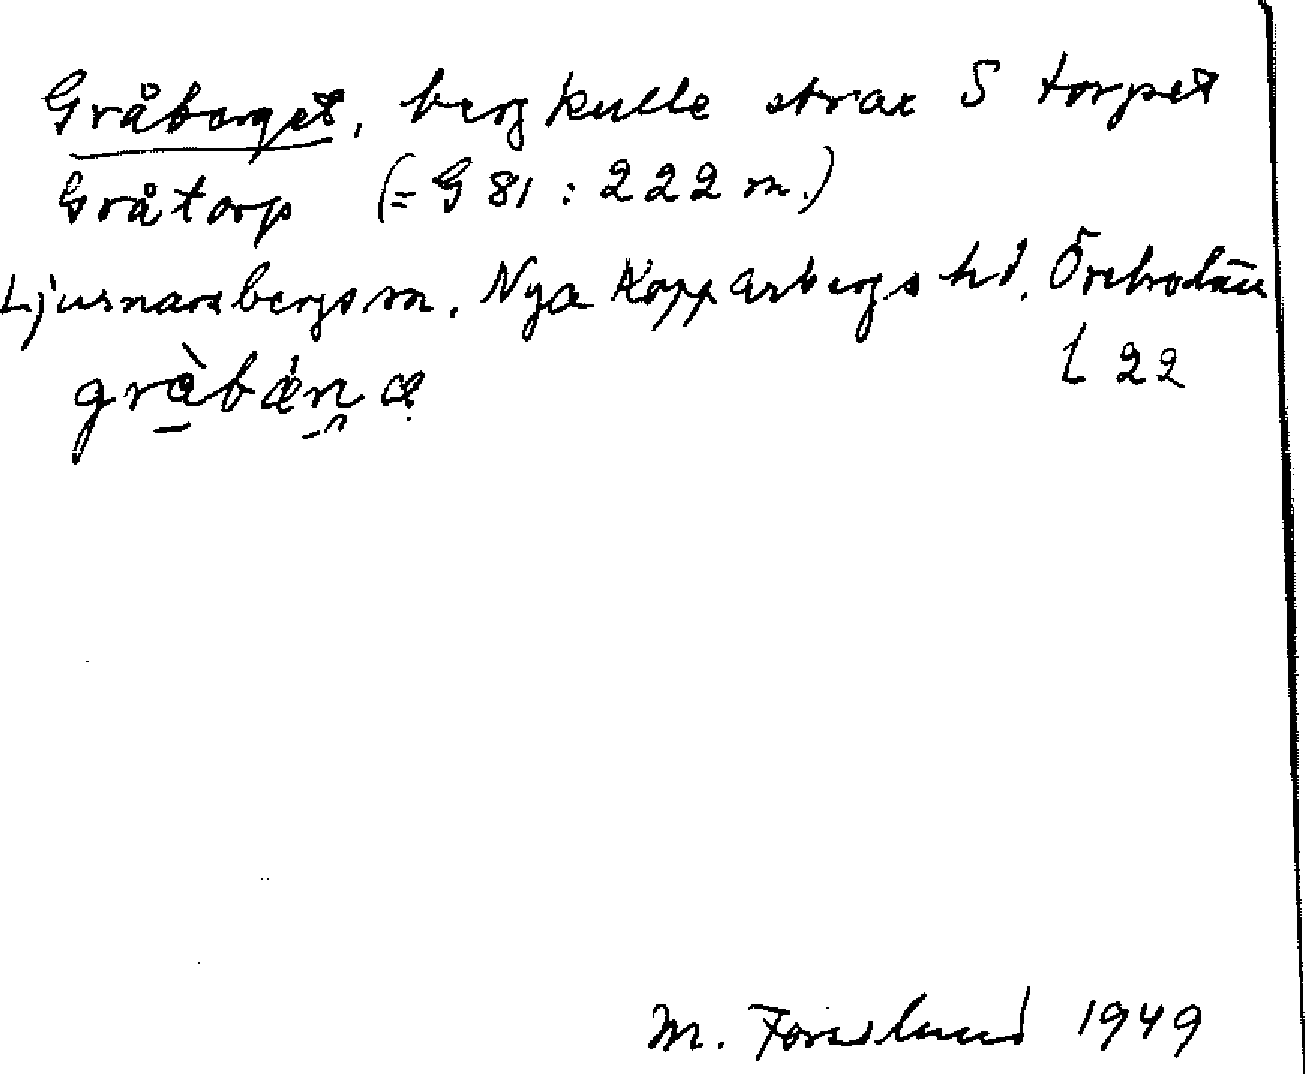 Gråberget, bergkulle strax S torpet
Gråtorp (= G 81 : 222 m.)
Ljusnarsbergs sn. Nya Kopparbergs hd. Örebro län
gràbǽn̥æ l 22
M. Forslund 1949